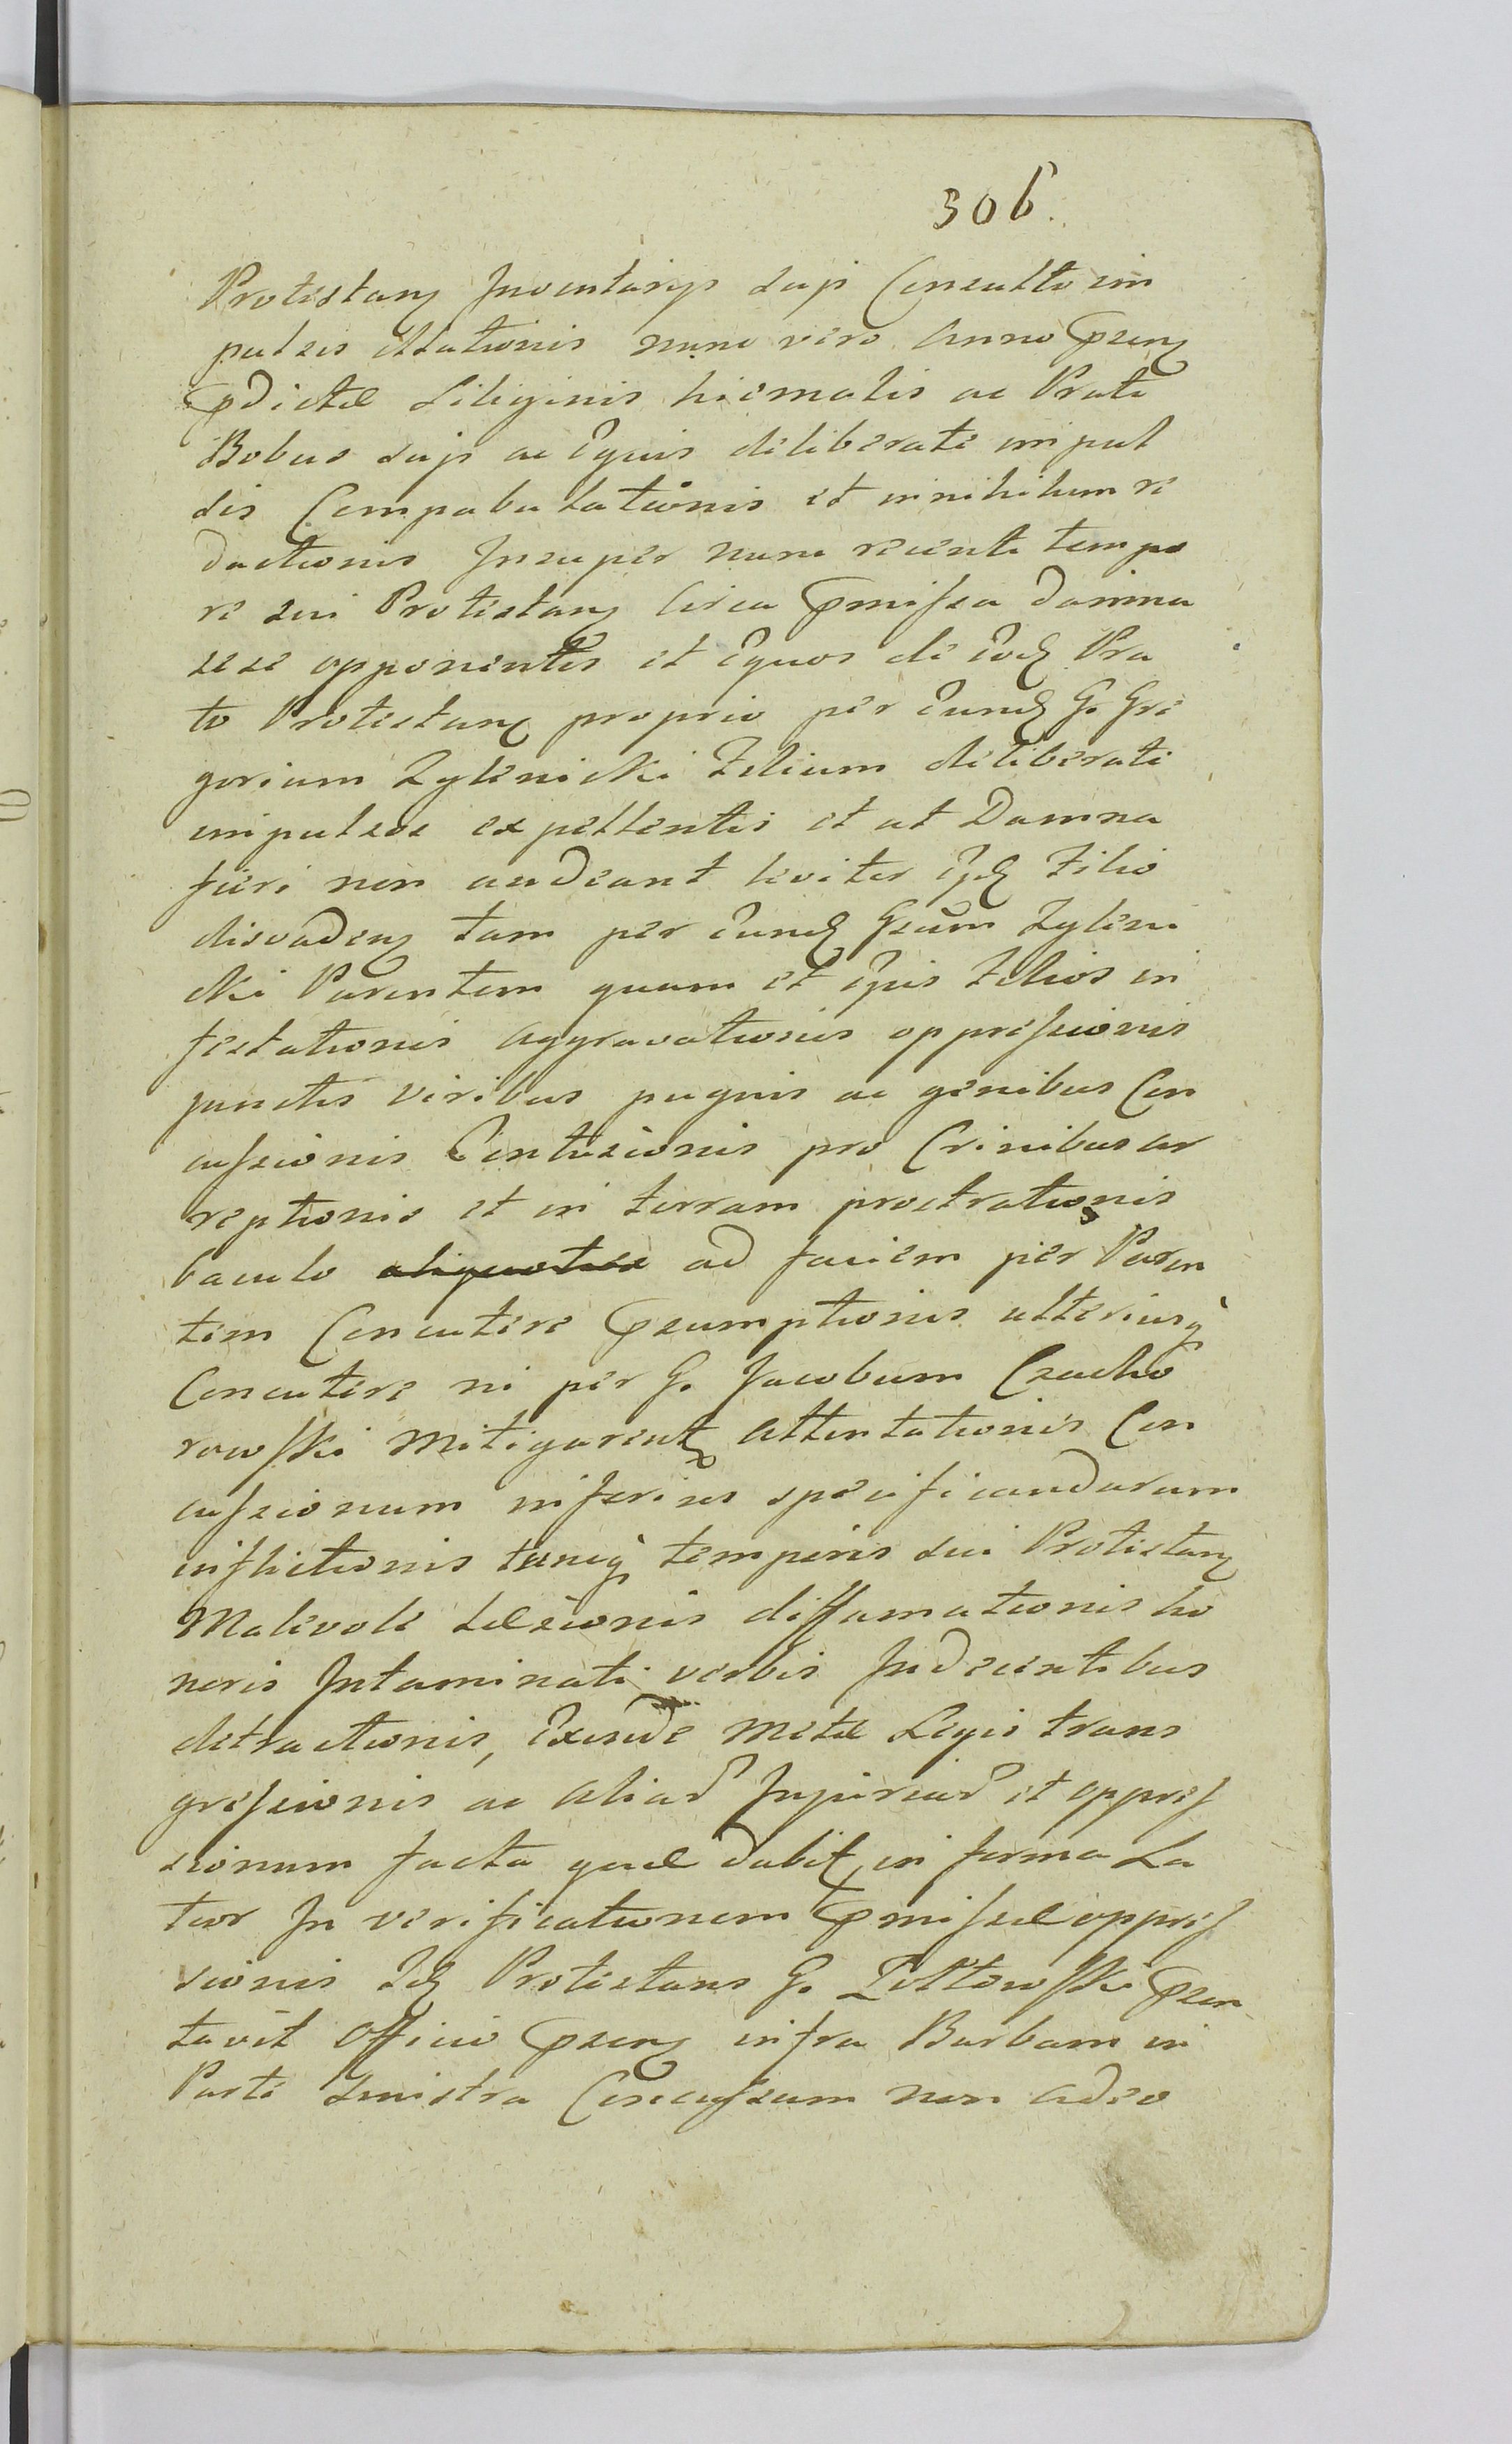 306.
Protestanꝫ Inventarijs suis Consulto im
pulsis ... nunc vero Anno pꝛsenꝫ
pꝛdictæ Siliginis hiemalis ac Prati
Bobus suis ac Equis deliberate impul
sis Compabulationis et in nihilum re
ductionis Insuper nunc recenti tempo
re sui Protestanꝫ circa pꝛmissa damna
sese opponentis et Equos de eodꝫ Pra
to Protestanꝫ proprio per Eundꝫ G. Gre
gorium Zylenicki Filium deliberate
impulsos expellentis et ut Damna
fieri non audeant leviter Ejusdꝫ Filio
disvadenꝫ tam per Eundꝫ Gsum Zyleni
cki Parentem quam et Ejus Filios in
festationis Aggravationis oppressionis
junctis viribus pugnis ac genibus Con
cussionis Contusionis pro Crinibus ar
reptionis et in terram prostrationis
baculo aliquoties ad faciem per Paren
tem Concutere pꝛsumptionis ulteriusqꝫ
Concutere ni per G. Jacobum Czacho
rowski mitigarentꝫ Attentationis Con
cussionum inferius specificandarum
inflictionis tuncqꝫ temporis sui Protestanꝫ
Malevole Læsionis diffamationis ho
noris Intaminati verbis Indecentibus
detractionis, Exinde metæ Legis trans
gressionis ac Aliarꝫ Injuriarꝫ et oppres
sionum facta quæ dabit in forma La
tior In verificationem pꝛmissæ oppres
sionis Idꝫ Protestans G. Zoltowski pꝛsen
tavit Officio pꝛsenꝫ infra Barbam in
Parte Sinistra Concussum non adeo